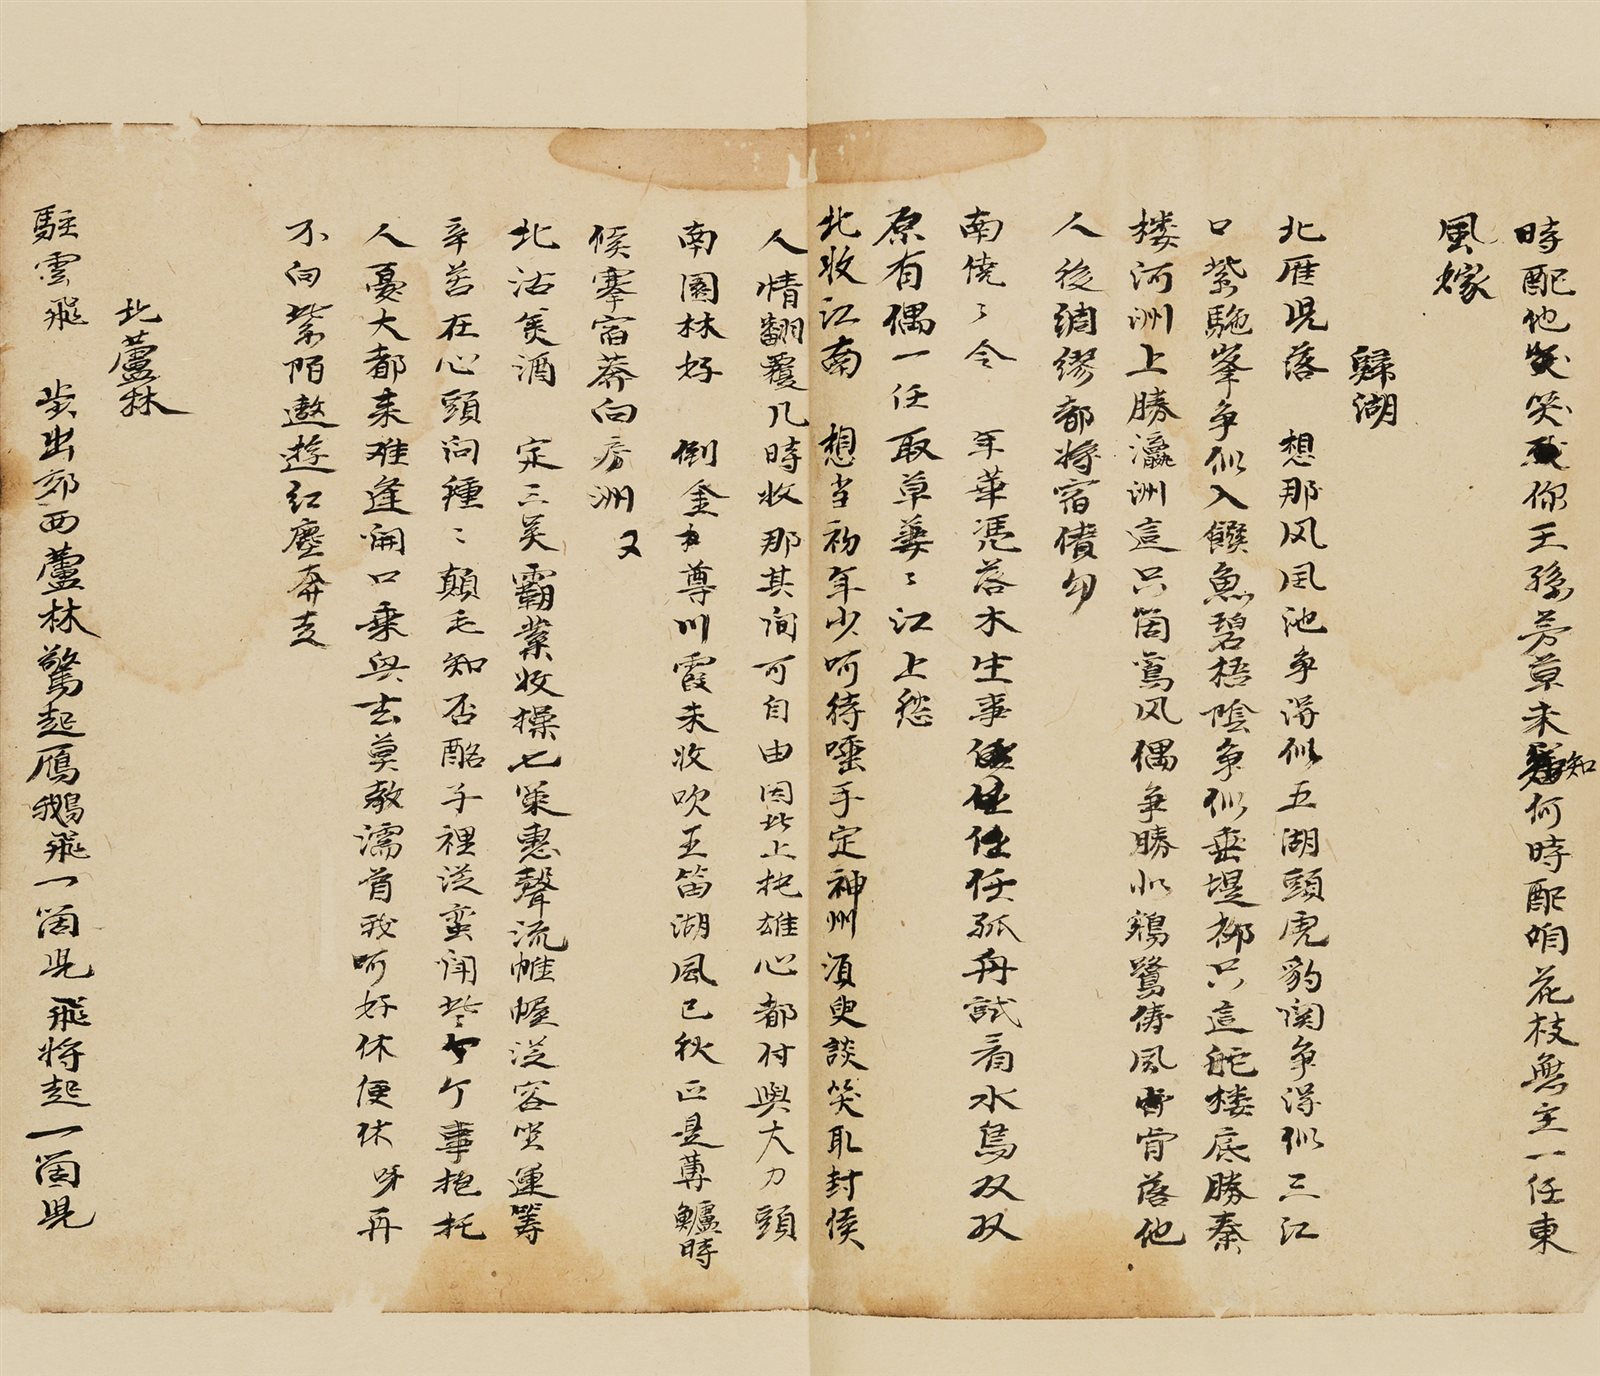 時配他咲哭殺你王孫芳草未知何時配咱花枝無主一任東
風嫁
歸湖
北雁児落　想那风凤池争得似五湖頭虎豹関争得似三江
口紫駞峯争似入饌魚碧梧陰争似垂堤柳只這舵楼底勝秦
楼河洲上勝瀛洲這只箇鸾凤偶争勝似鷄鷺儔風肯落他
人後綢繆都将宿債勾
南僥〻令　年華凴落木生事任孤舟試看水鳥双双
原有偶一任取草萋〻江上愁
北收江南　想当初年少呵待唾手定神州湏臾談笑取封侯
人情翻覆几時收那其间可自由因此上把雄心都付與大刀頭
南園林好　倒金尊川霞未收吹玉笛湖風已秋正是蓴鱸時
候搴宿莽向芳洲　又
北沽美酒　定三吴霸業收操七策惠聲流帷幄従容坐運筹
辛苦在心頭问種〻顛毛知否酩子裡従蛮闹些〻个事抱托
人憂大都来难逢開口乗興去莫教濡首我呵好休便休呀再
不向紫陌遨遊紅塵奔走
北蘆林
駐雲飛　步出郊西蘆林驚起鴈鵝飛一箇児飛将起一箇児